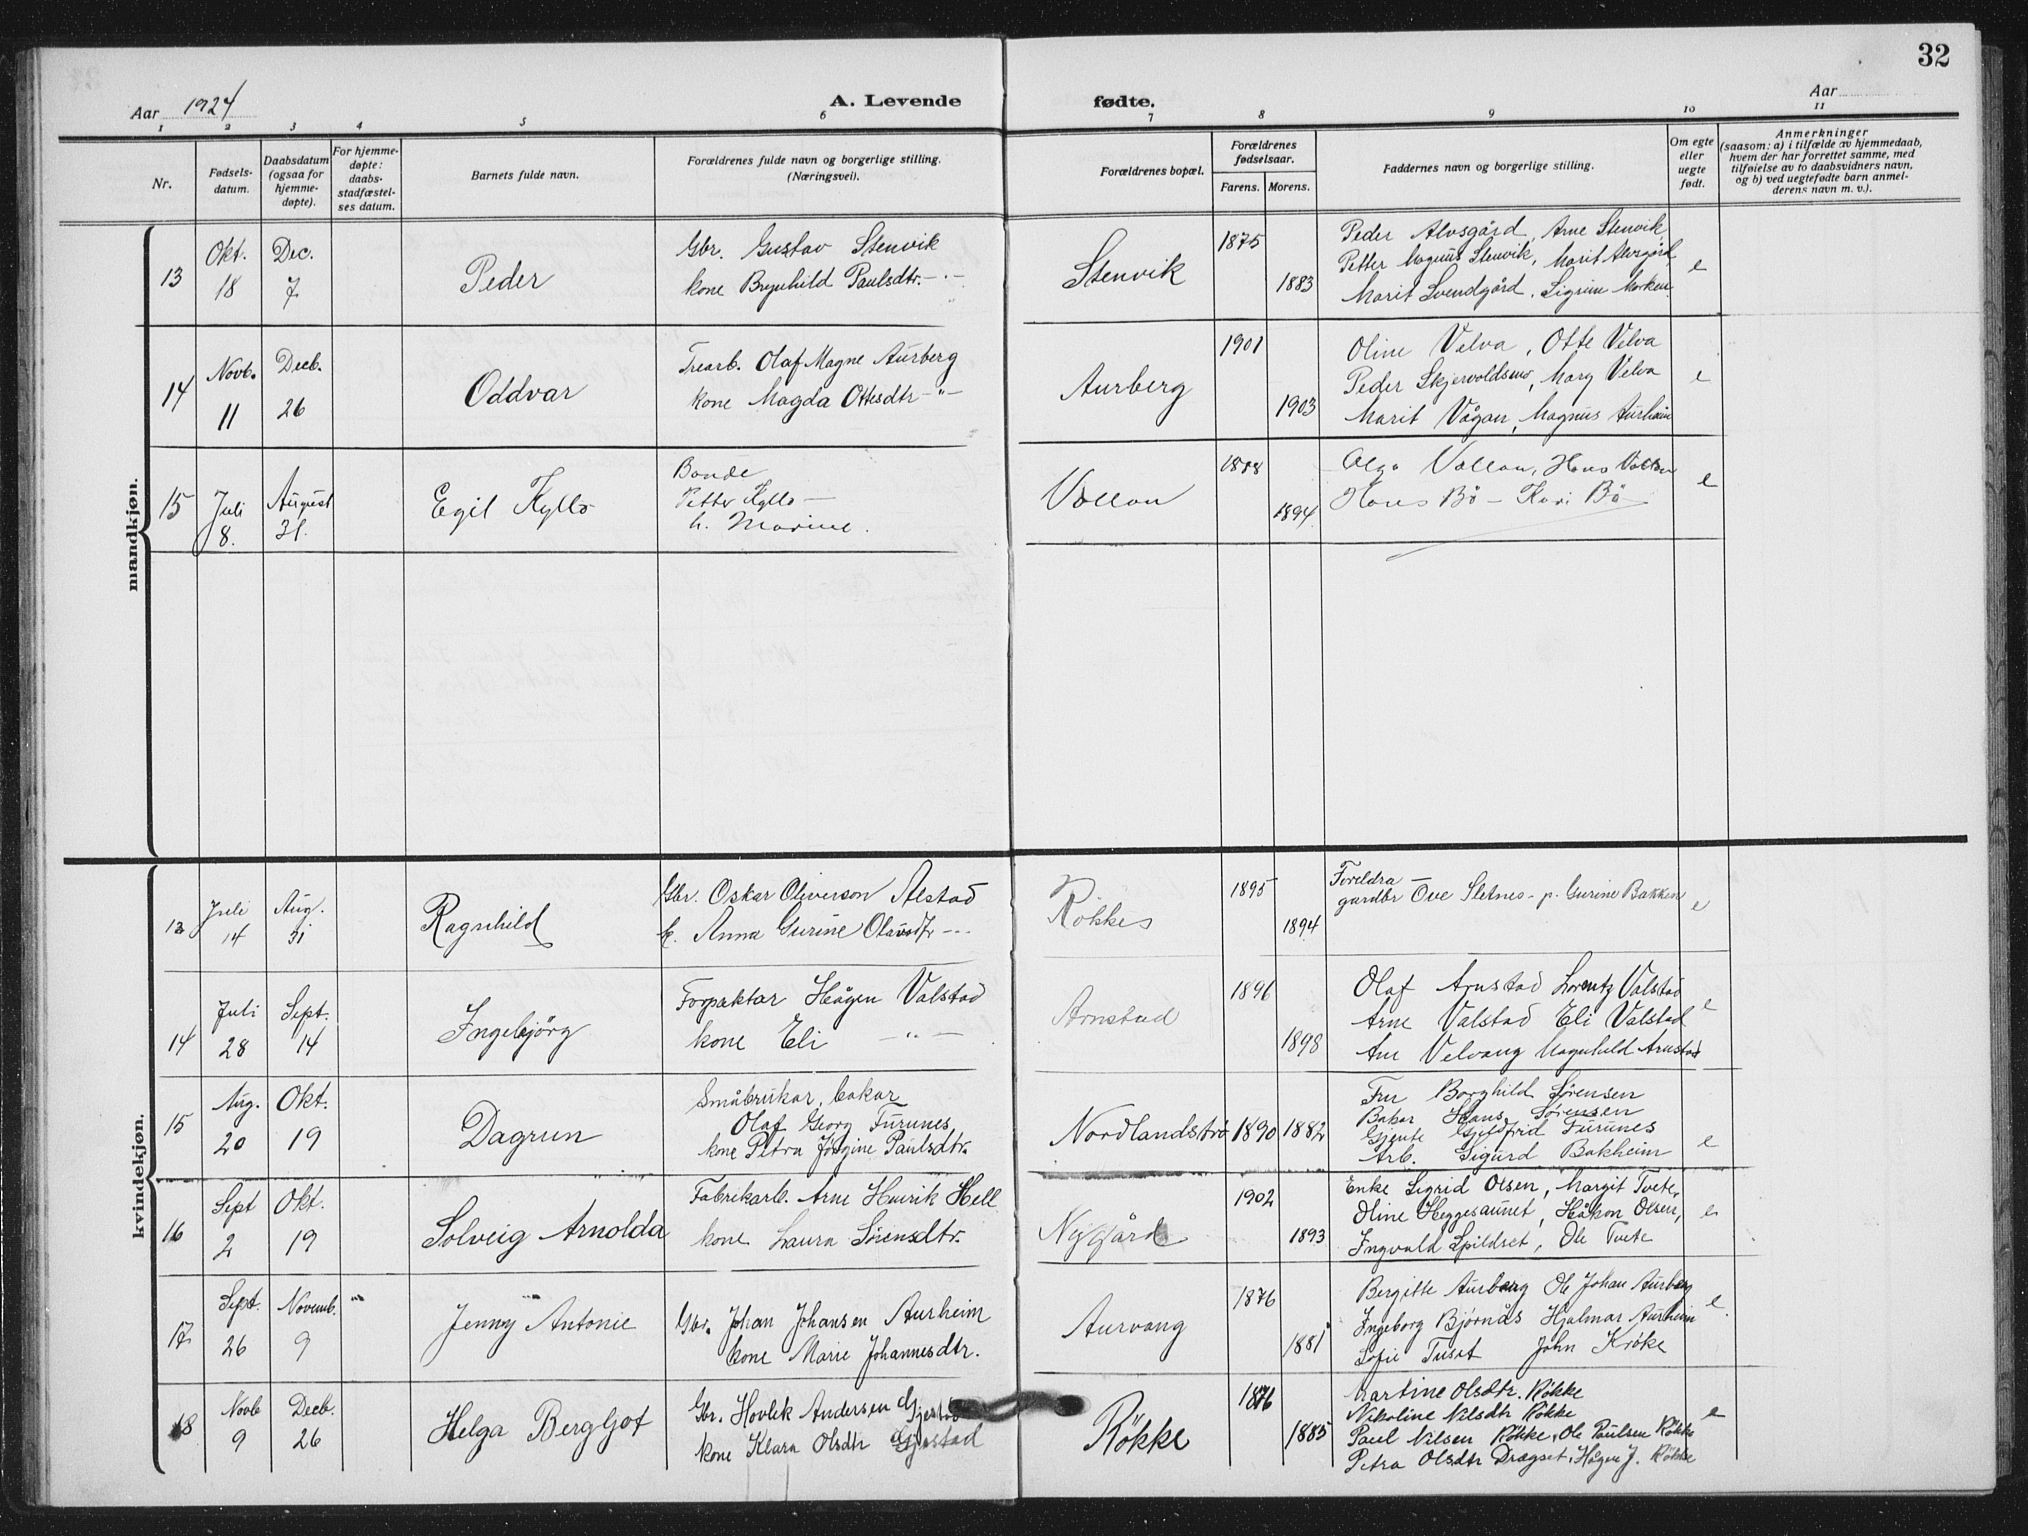 32
Aar 1924
A. Levende fødte.
Aar
1 2 3 4 5 6 7 8 9 10 11
Nr.
Fødsels-
datum.
Daabsdatum
(ogsaa for
hjemme-
døpte).
For hjemme-
døpte:
daabs-
stadfæstel-
ses datum.
Barnets fulde navn.
Forældrenes fulde navn og borgerlige stilling.
(Næringsvei).
Forældrenes bopæl.
Forældrenes
fødselsaar.
Farens. Morens.
Faddernes navn og borgerlige stilling.
Om egte
eller
uegte
født.
Anmerkninger
(saasom: a) i tilfælde av hjemmedaab,
hvem der har forrettet samme, med
tilføielse av to daabsvidners navn,
og b) ved uegtefødte barn anmel-
derens navn m. v.).
mandkjøn.
13
Okt.
18
Dec.
7
Peder
Gbr. Gustav Stenvik
kone Brynhild Paulsdtr. - " -
Stenvik
1875
1883
Peder Alvsgård, Arne Stenvik
Petter Magnus Stenvik, Marit Alvsgård,
Marit Svendgård, Sigrun Morken
e
14
Novb.
11
Decb.
26
Oddvar
Trearb. Olaf Magne Aurberg
kone Magda Ottesdtr - " -
Aurberg
1901
1903
Oline Velva, Otte Velva
Peder Skjervoldsens, Mary Velva
Marit Vågan, Magnus Aurheim
e
15
Juli
8.
August
31.
Egil Kyllo
Bonde
Petter Kyllo -
h. Marine.
Vollan
1894
Olga Vollan, Hans Vollan
Hans Bö - Kari Bö
e
kvindekjøn.
13
Juli
14
Aug.
31
Ragnhild
Gbr. Oskar Oliverson Alstad
k. Anna Gurine Olausdtr - " -
Røkkes
1895
1894
Foreldra -
gardbr Ove Sletnes - p. Gurine Bakken
e
14
Juli
28
Sept.
14
Ingebjörg
Forpaktar Hågen Valstad
kone Eli - " -
Arnstad
1896
1898
Olaf Arnstad Lorentz Valstad
Arne Valstad Eli Valstad
Ane Velvang Magnhild Arnstad
e
15
Aug.
20
Okt.
19
Dagrun
Småbrukar, bakar
Olaf Georg Furunes
kone Petra Jørgine Paulsdtr.
Nordlandstrø
1890
1882
Fru Borghild Sørensen
Bakar Hans Sørensen
Gjente Gjeldfrid Furunes
Arb. Sigurd Bakheim
e
16
Sept
2
Okt.
19
Solveig Arnolda
Fabrikarb. Arne Henrik Hell
kone Laura Sørensdtr.
Nygård
1902
1893
Enke Sigrid Olsen, Margit Tvete,
Oline Heggesaunet, Håkon Olsen,
Ingvald Spildset, Ole Tvete
e
17
Sept.
26
Novemb.
9
Jenny Antonie
Gbr. Johan Johansen Aurheim
kone Marie Johannesdtr.
Aurvang
1876
1881
Bergitte Aurberg Ole Johan Aurberg
Ingeborg Bjørnås Hjalmar Aurheim
Sofie Tuset John Krøke
e.
18
Novb
9
Decb.
26
Helga Bergljot
Gbr. Hovlek Andersen Gjestad
kone Klara Olsdtr Gjestad
Rökke
1876
1885
Martine Olsdtr. Røkke
Nikoline Nilsdtr Røkke
Paul Nilsen Røkke, Ole Paulsen Røkke
Petra Olsdtr Dragset, Hågen J. Røkke
e